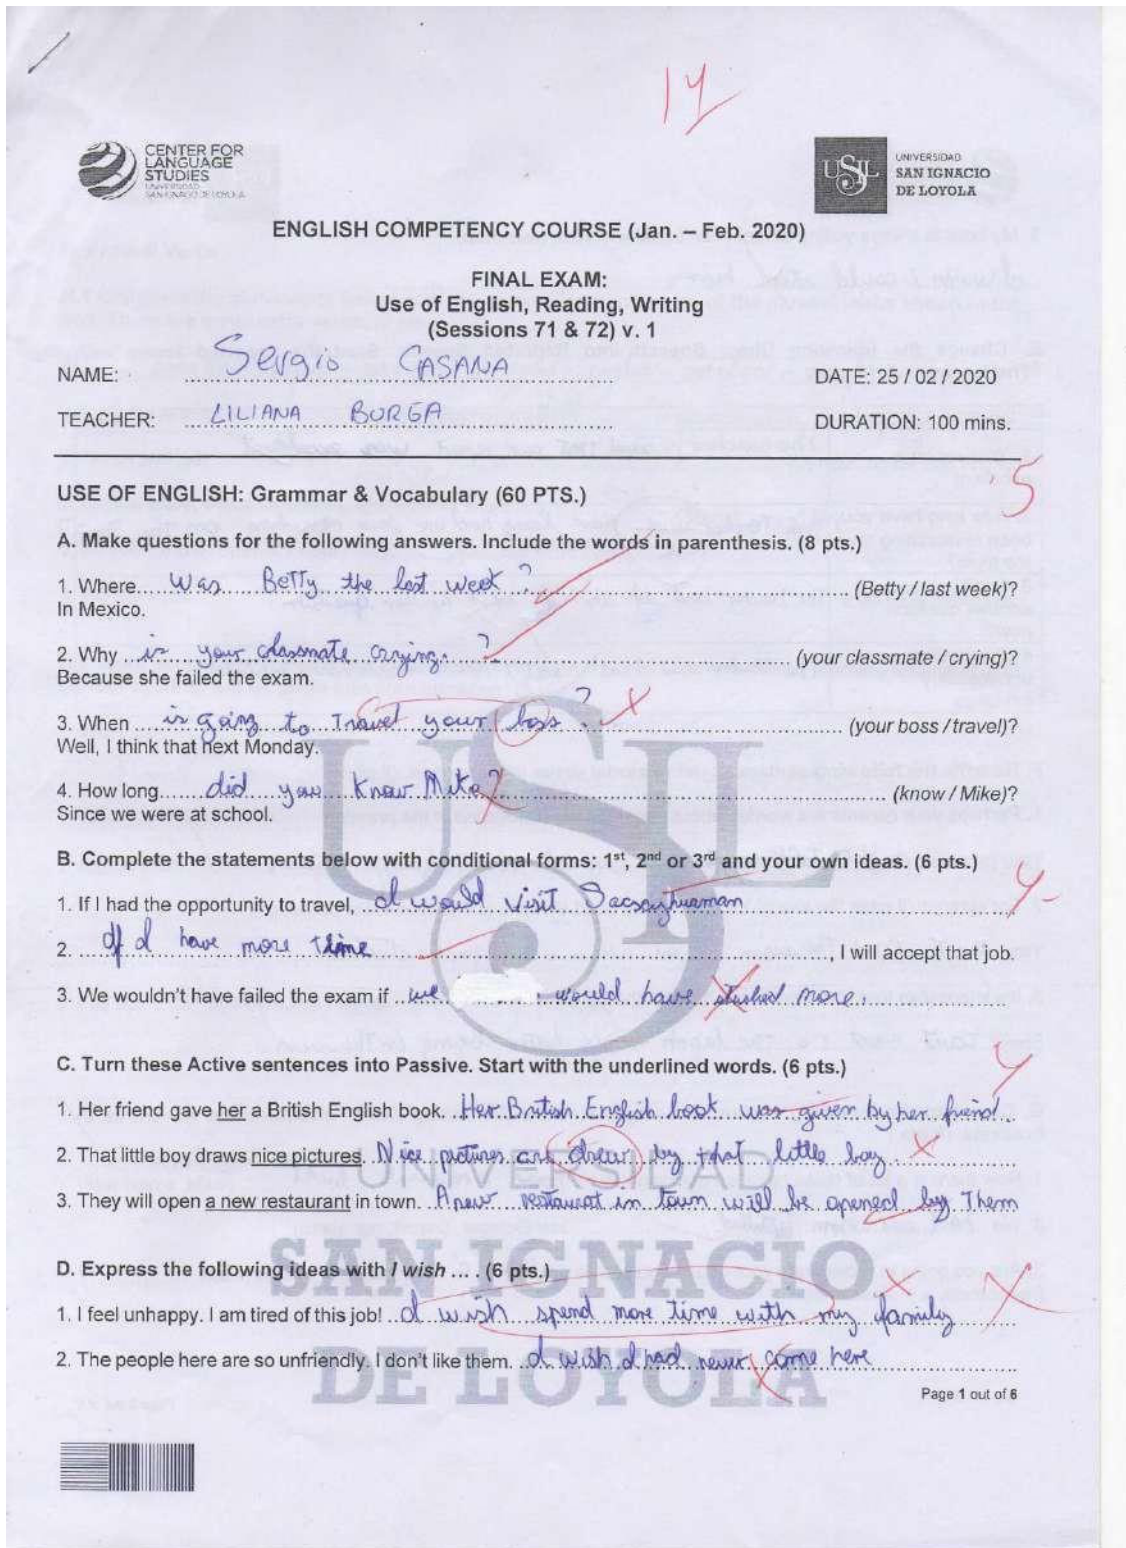 14
CENTER FOR
LANGUAGE
STUDIES
UNIVERSIDAD
SAN IGNACIO DE LOYOLA
USIL
UNIVERSIDAD
SAN IGNACIO
DE LOYOLA
ENGLISH COMPETENCY COURSE (Jan. – Feb. 2020)
FINAL EXAM:
Use of English, Reading, Writing
(Sessions 71 & 72) v. 1
NAME: Sergio CASANA
DATE: 25 / 02 / 2020
TEACHER: LILIANA BURGA
DURATION: 100 mins.
5
USE OF ENGLISH: Grammar & Vocabulary (60 PTS.)
A. Make questions for the following answers. Include the words in parenthesis. (8 pts.)
1. Where was Betty the last week ? (Betty / last week)?
In Mexico.
2. Why is your classmate crying. ? (your classmate / crying)?
Because she failed the exam.
3. When is going to Travel your boss ? (your boss / travel)?
Well, I think that next Monday.
4. How long did you know Mike? (know / Mike)?
Since we were at school.
B. Complete the statements below with conditional forms: 1st, 2nd or 3rd and your own ideas. (6 pts.)
4
1. If I had the opportunity to travel, I would visit Sacsayhuaman
2. If I have more time , I will accept that job.
3. We wouldn't have failed the exam if we would have studied more.
C. Turn these Active sentences into Passive. Start with the underlined words. (6 pts.)
4
1. Her friend gave her a British English book. Her British English book was given by her friend.
2. That little boy draws nice pictures. Nice pictures are drew by that little boy.
3. They will open a new restaurant in town. A new restaurat in town will be opened by Them
D. Express the following ideas with I wish ... . (6 pts.)
1. I feel unhappy. I am tired of this job! I wish spend more time with my family
2. The people here are so unfriendly. I don't like them. I wish I had never come here
Page 1 out of 6
USIL
UNIVERSIDAD
SAN IGNACIO
DE LOYOLA